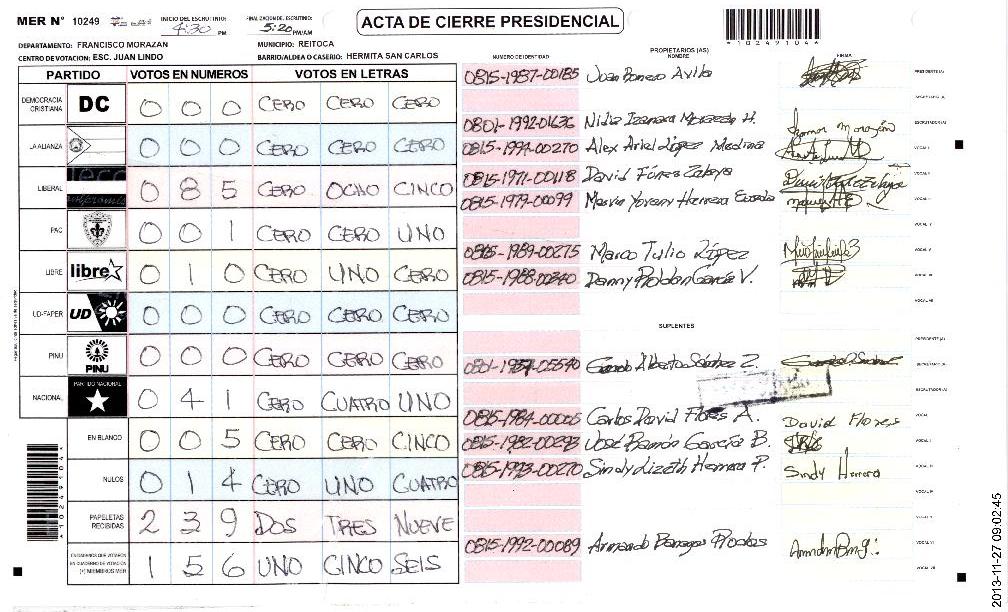 MER N° 10249 INICIO DEL ESCRUTINIO: 4:30 PM FINALIZACION DEL ESCRUTINIO: 5:20 PM/AM
ACTA DE CIERRE PRESIDENCIAL
*10249104*
DEPARTAMENTO: FRANCISCO MORAZAN MUNICIPIO: REITOCA
CENTRO DE VOTACION: ESC. JUAN LINDO BARRIO/ALDEA O CASERIO: HERMITA SAN CARLOS
PARTIDO VOTOS EN NUMEROS VOTOS EN LETRAS
DEMOCRACIA CRISTIANA DC 0 0 0 CERO CERO CERO
LA ALIANZA 0 0 0 CERO CERO CERO
LIBERAL 0 8 5 CERO OCHO CINCO
PAC 0 0 1 CERO CERO UNO
LIBRE libre 0 1 0 CERO UNO CERO
UD-FAPER UD 0 0 0 CERO CERO CERO
PINU PINU 0 0 0 CERO CERO CERO
NACIONAL PARTIDO NACIONAL 0 4 1 CERO CUATRO UNO
EN BLANCO 0 0 5 CERO CERO CINCO
NULOS 0 1 4 CERO UNO CUATRO
PAPELETAS RECIBIDAS 2 3 9 DOS TRES NUEVE
(+) MIEMBROS MER 1 5 6 UNO CINCO SEIS
PROPIETARIOS (AS)
NUMERO DE IDENTIDAD NOMBRE FIRMA
0815-1987-00185 Avila PRESIDENTE(A)
SECRETARIO(A)
0801-1992-01636 Nidia H. ESCRUTADOR(A)
0815-1994-00270 Alex Ariel López Medina VOCAL I
0815-1971-00118 David Fúnez Zelaya
0815-1979-00099 Herrera
Marco Tulio López
0815-1988-00240 Danny García V.
SUPLENTES
PRESIDENTE(A)
Alberto Z. SECRETARIO(A)
ESCRUTADOR(A)
0815-1984-00065 Carlos David Flores A. David Flores VOCAL
0815-1982-00293 José Ramón García B. VOCAL I
0815-1993-00270 Sindy Lizeth Herrera P. Sindy Herrera
0815-1992-00089 Armando
*10249104*
2013-11-27 09:02:45